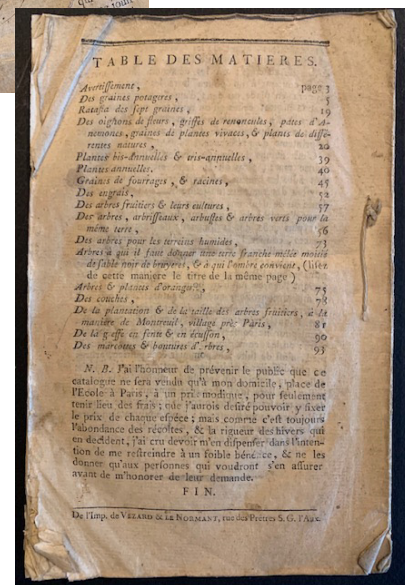 TABLE DES MATIERES.
Avertissement, page 3
Des graines potageres, 5
Ratafia des sept graines, 19
Des oignons de fleurs, griffes de renoncules, pates d'A-
nemones, graines de plantes vivaces, & plants de diffe-
rentes natures, 20
Plantes bis-annuelles & tris-annuelles, 39
Plantes annuelles. 40
Graines de fourrages, & racines, 45
Des engrais, 52
Des arbres fruitiers & leurs cultures, 57
Des arbres, arbrisseaux, arbustes & arbres verts pour la
même terre, 56
Des arbres pour les terreins humides, 73
Arbres à qui il faut donner une terre franche mêlée moitié
de sable noir de bruyeres, & à qui l'ombre convient, (lisez
de cette maniere le titre de la même page)
Arbres & plantes d'orangerie, 75
Des couches, 78
De la plantation & de la taille des arbres fruitiers, à la
maniere de Montreuil, village près Paris, 81
De la greffe en fente & en écusson, 90
Des marcottes & boutures d'arbres, 93
N. B. J'ai l'honneur de prévenir le public que ce
catalogue ne sera vendu qu'à mon domicile, place de
l'Ecole à Paris, à un prix modique, pour seulement
tenir lieu des frais; que j'aurois desiré pouvoir y fixer
le prix de chaque espéce; mais comme c'est toujours
l'abondance des récoltes, & la rigueur des hivers qui
en decident, j'ai cru devoir m'en dispenser dans l'inten-
tion de me restreindre à un foible bénéfice, & ne les
donner qu'aux personnes qui voudront s'en assurer
avant de m'honorer de leur demande.
FIN.
De l'Imp. de VEZARD & LE NORMANT, rue des Prêtres S. G. l'Aux.